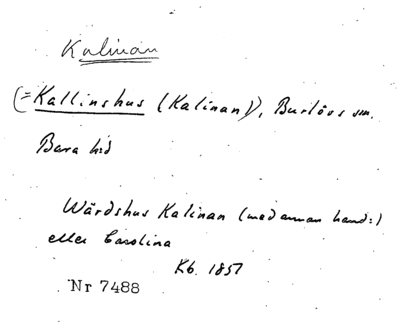 Kalinan
(=Kallinshus (Kalinan)), Burlövs sn.
Bara hd
Wärdshus Kalinan (med annan hand:)
eller Carolina
Kb. 1857
Nr 7488